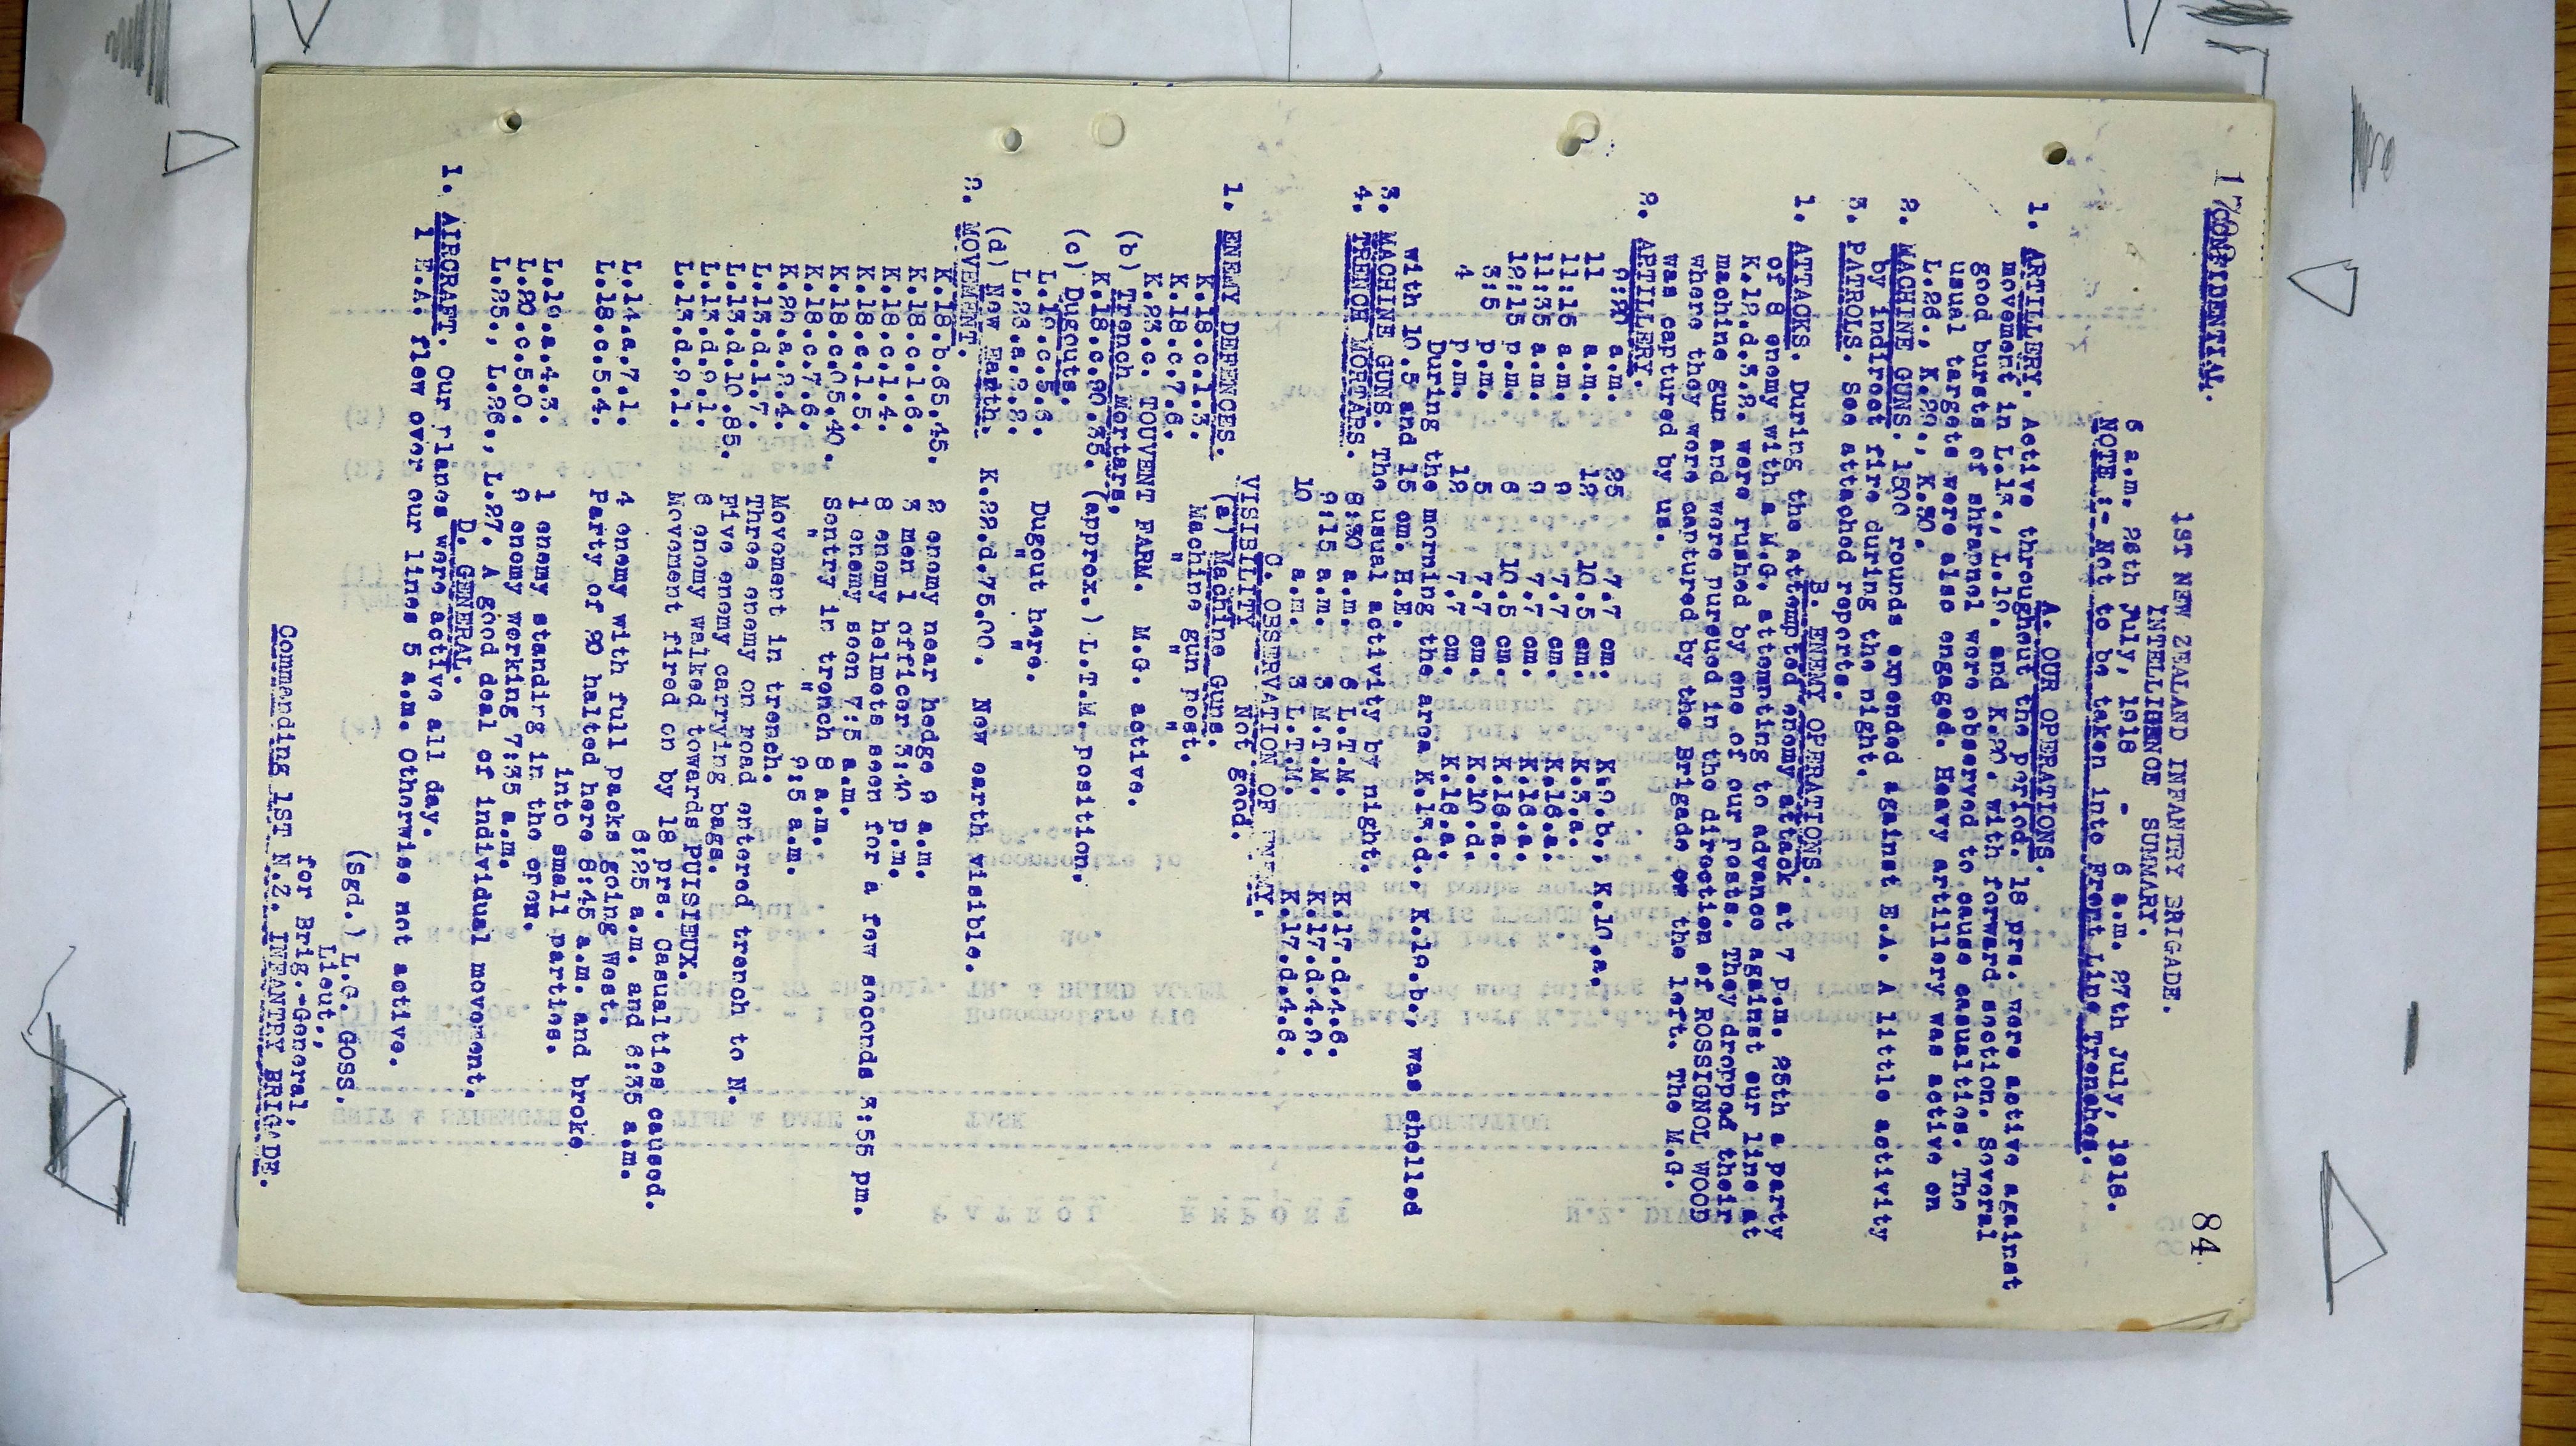 CONFIDENTIAL.
84
1ST NEW ZEALAND INFANTRY BRIGADE.
INTELLIGENCE SUMMARY.
6 a.m. 26th July, 1918 - 6 a.m. 27th July, 1918.
NOTE :- Not to be taken into Front Line Trenches.
A. OUR OPERATIONS.
1. ARTILLERY. Active throughout the period. 18 prs. were active against
movement in L.13., L.19. and K.20. with forward section. Several
good bursts of shrapnel were observed to cause casualties. The
usual targets were also engaged. Heavy artillery was active on
L.26., K.29., K.30.
2. MACHINE GUNS. 1500 rounds expended against E.A. A little activity
by indirect fire during the night.
3. PATROLS. See attached reports.
B. ENEMY OPERATIONS.
1. ATTACKS. During the attempted enemy attack at 7 p.m. 25th a party
of 8 enemy with a M.G. attempting to advance against our line at
K.12.d.3.2. were rushed by one of our posts. They dropped their
machine gun and were pursued in the direction of ROSSIGNOL WOOD
where they were captured by the Brigade on the left. The M.G.
was captured by us.
2. ARTILLERY.
9:20 a.m. 25 7.7 cm. K.9.b., K.10.a.
11 a.m. 12 10.5 cm. K.3.a.
11:15 a.m. 9 7.7 cm. K.16.a.
11:35 a.m. 9 7.7 cm. K.16.a.
12:15 p.m. 6 10.5 cm. K.16.a.
3:5 p.m. 5 7.7 cm. K.10.d.
4 p.m. 12 7.7 cm. K.16.a.
During the morning the area K.13.d., K.19.b., was shelled
with 10.5 and 15 cm. H.E.
3. MACHINE GUNS. The usual activity by night.
4. TRENCH MORTARS. 8:30 a.m. 6 L.T.M. K.17.d.4.6.
9:15 a.m. 3 M.T.M. K.17.d.4.9.
10 a.m. 3 L.T.M. K.17.d.4.6.
C. OBSERVATION OF ENEMY.
VISIBILITY Not good.
1. ENEMY DEFENCES. (a) Machine Guns.
K.18.c.1.3. Machine gun post.
K.18.c.7.6. " "
K.23.c. TOUVENT FARM. M.G. active.
(b) Trench Mortars.
K.18.c.90.35. (approx.) L.T.M. position.
(c) Dugouts.
L.19.c.5.6. Dugout here.
L.23.a.2.2. " "
(d) New Earth. K.22.d.75.00. New earth visible.
2. MOVEMENT.
K.18.b.65.45. 2 enemy near hedge 9 a.m.
K.18.c.1.6. 3 men 1 officer 3:40 p.m.
K.18.c.1.4. 8 enemy helmets seen for a few seconds 3:55 pm.
K.18.c.1.5. 1 enemy seen 7:5 a.m.
K.18.c.05.40. Sentry in trench 8 a.m.
K.18.c.7.6. " " 9:5 a.m.
K.29.a.2.4. Movement in trench.
L.13.d.1.7. Three enemy on road entered trench to N.
L.13.d.10.85. Five enemy carrying bags.
L.13.d.9.1. 8 enemy walked towards PUISIEUX.
L.13.d.9.1. Movement fired on by 18 prs. Casualties caused.
6:25 a.m. and 6:35 a.m.
L.14.a.7.1. 4 enemy with full packs going West.
L.18.c.5.4. Party of 30 halted here 8:45 a.m. and broke
into small parties.
L.19.a.4.3. 1 enemy standing in the open.
L.20.c.5.0. 9 enemy working 7:35 a.m.
L.25., L.26., L.27. A good deal of individual movement.
D. GENERAL.
1. AIRCRAFT. Our planes were active all day.
1 E.A. flew over our lines 5 a.m. Otherwise not active.
(Sgd.) L.G. GOSS.
Lieut.,
for Brig.-General,
Commanding 1ST N.Z. INFANTRY BRIGADE.